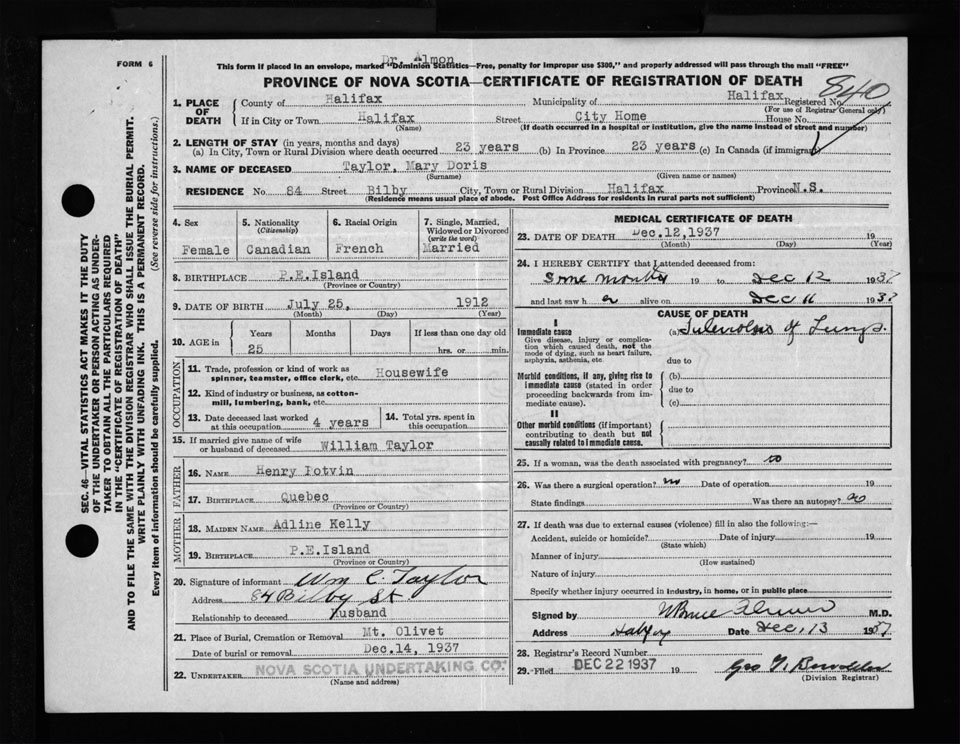 FORM 6
Dr. Almon
This form if placed in an envelope, marked "Dominion Statistics—Free, penalty for improper use $300," and properly addressed will pass through the mail "FREE"
PROVINCE OF NOVA SCOTIA—CERTIFICATE OF REGISTRATION OF DEATH
840
1. PLACE OF DEATH
County of Halifax Municipality of Halifax Registered No.
(For use of Registrar General only)
If in City or Town Halifax Street City Home House No.
(Name) (If death occurred in a hospital or institution, give the name instead of street and number)
2. LENGTH OF STAY (in years, months and days)
(a) In City, Town or Rural Division where death occurred 23 years (b) In Province 23 years (c) In Canada (if immigrant)
3. NAME OF DECEASED Taylor, Mary Doris
(Surname) (Given name or names)
RESIDENCE No. 84 Street Bilby City, Town or Rural Division Halifax Province N.S.
(Residence means usual place of abode. Post Office Address for residents in rural parts not sufficient)
4. Sex
Female
5. Nationality
(Citizenship)
Canadian
6. Racial Origin
French
7. Single, Married,
Widowed or Divorced
(write the word)
Married
8. BIRTHPLACE P.E.Island
(Province or Country)
9. DATE OF BIRTH July 25, 1912
(Month) (Day) (Year)
10. AGE in
Years Months Days If less than one day old
25 hrs. or min.
OCCUPATION
11. Trade, profession or kind of work as
spinner, teamster, office clerk, etc. Housewife
12. Kind of industry or business, as cotton-
mill, lumbering, bank, etc.
13. Date deceased last worked
at this occupation 4 years
14. Total yrs. spent in
this occupation
15. If married give name of wife
or husband of deceased William Taylor
FATHER
16. NAME Henry Potvin
17. BIRTHPLACE Quebec
(Province or Country)
MOTHER
18. MAIDEN NAME Adline Kelly
19. BIRTHPLACE P.E.Island
(Province or Country)
20. Signature of informant Wm C. Taylor
Address 84 Bilby St
Relationship to deceased Husband
21. Place of Burial, Cremation or Removal Mt. Olivet
Date of burial or removal Dec.14, 1937
22. UNDERTAKER NOVA SCOTIA UNDERTAKING CO.
(Name and address)
MEDICAL CERTIFICATE OF DEATH
23. DATE OF DEATH Dec.12,1937 19
(Month) (Day) (Year)
24. I HEREBY CERTIFY that I attended deceased from:
Some months 19 to Dec 12 1937
and last saw h er alive on Dec 11 1937
CAUSE OF DEATH
I
Immediate cause
Give disease, injury or complica-
tion which caused death, not the
mode of dying, such as heart failure,
asphyxia, asthenia, etc.
(a) Tuberculosis of Lungs.
due to
Morbid conditions, if any, giving rise to
immediate cause (stated in order
proceeding backwards from im-
mediate cause).
(b)
due to
(c)
II
Other morbid conditions (if important)
contributing to death but not
causally related to immediate cause.
25. If a woman, was the death associated with pregnancy? no
26. Was there a surgical operation? no Date of operation 19
State findings Was there an autopsy? no
27. If death was due to external causes (violence) fill in also the following:—
Accident, suicide or homicide? Date of injury 19
(State which)
Manner of injury
(How sustained)
Nature of injury
Specify whether injury occurred in industry, in home, or in public place
Signed by W Bruce Almon M.D.
Address Halifax Date Dec, 13 1937
28. Registrar's Record Number
29. Filed DEC 22 1937 19 Geo
(Division Registrar)
SEC. 46—VITAL STATISTICS ACT MAKES IT THE DUTY
OF THE UNDERTAKER OR PERSON ACTING AS UNDER-
TAKER TO OBTAIN ALL THE PARTICULARS REQUIRED
IN THE "CERTIFICATE OF REGISTRATION OF DEATH"
AND TO FILE THE SAME WITH THE DIVISION REGISTRAR WHO SHALL ISSUE THE BURIAL PERMIT.
WRITE PLAINLY WITH UNFADING INK. THIS IS A PERMANENT RECORD.
Every item of information should be carefully supplied. (See reverse side for instructions.)